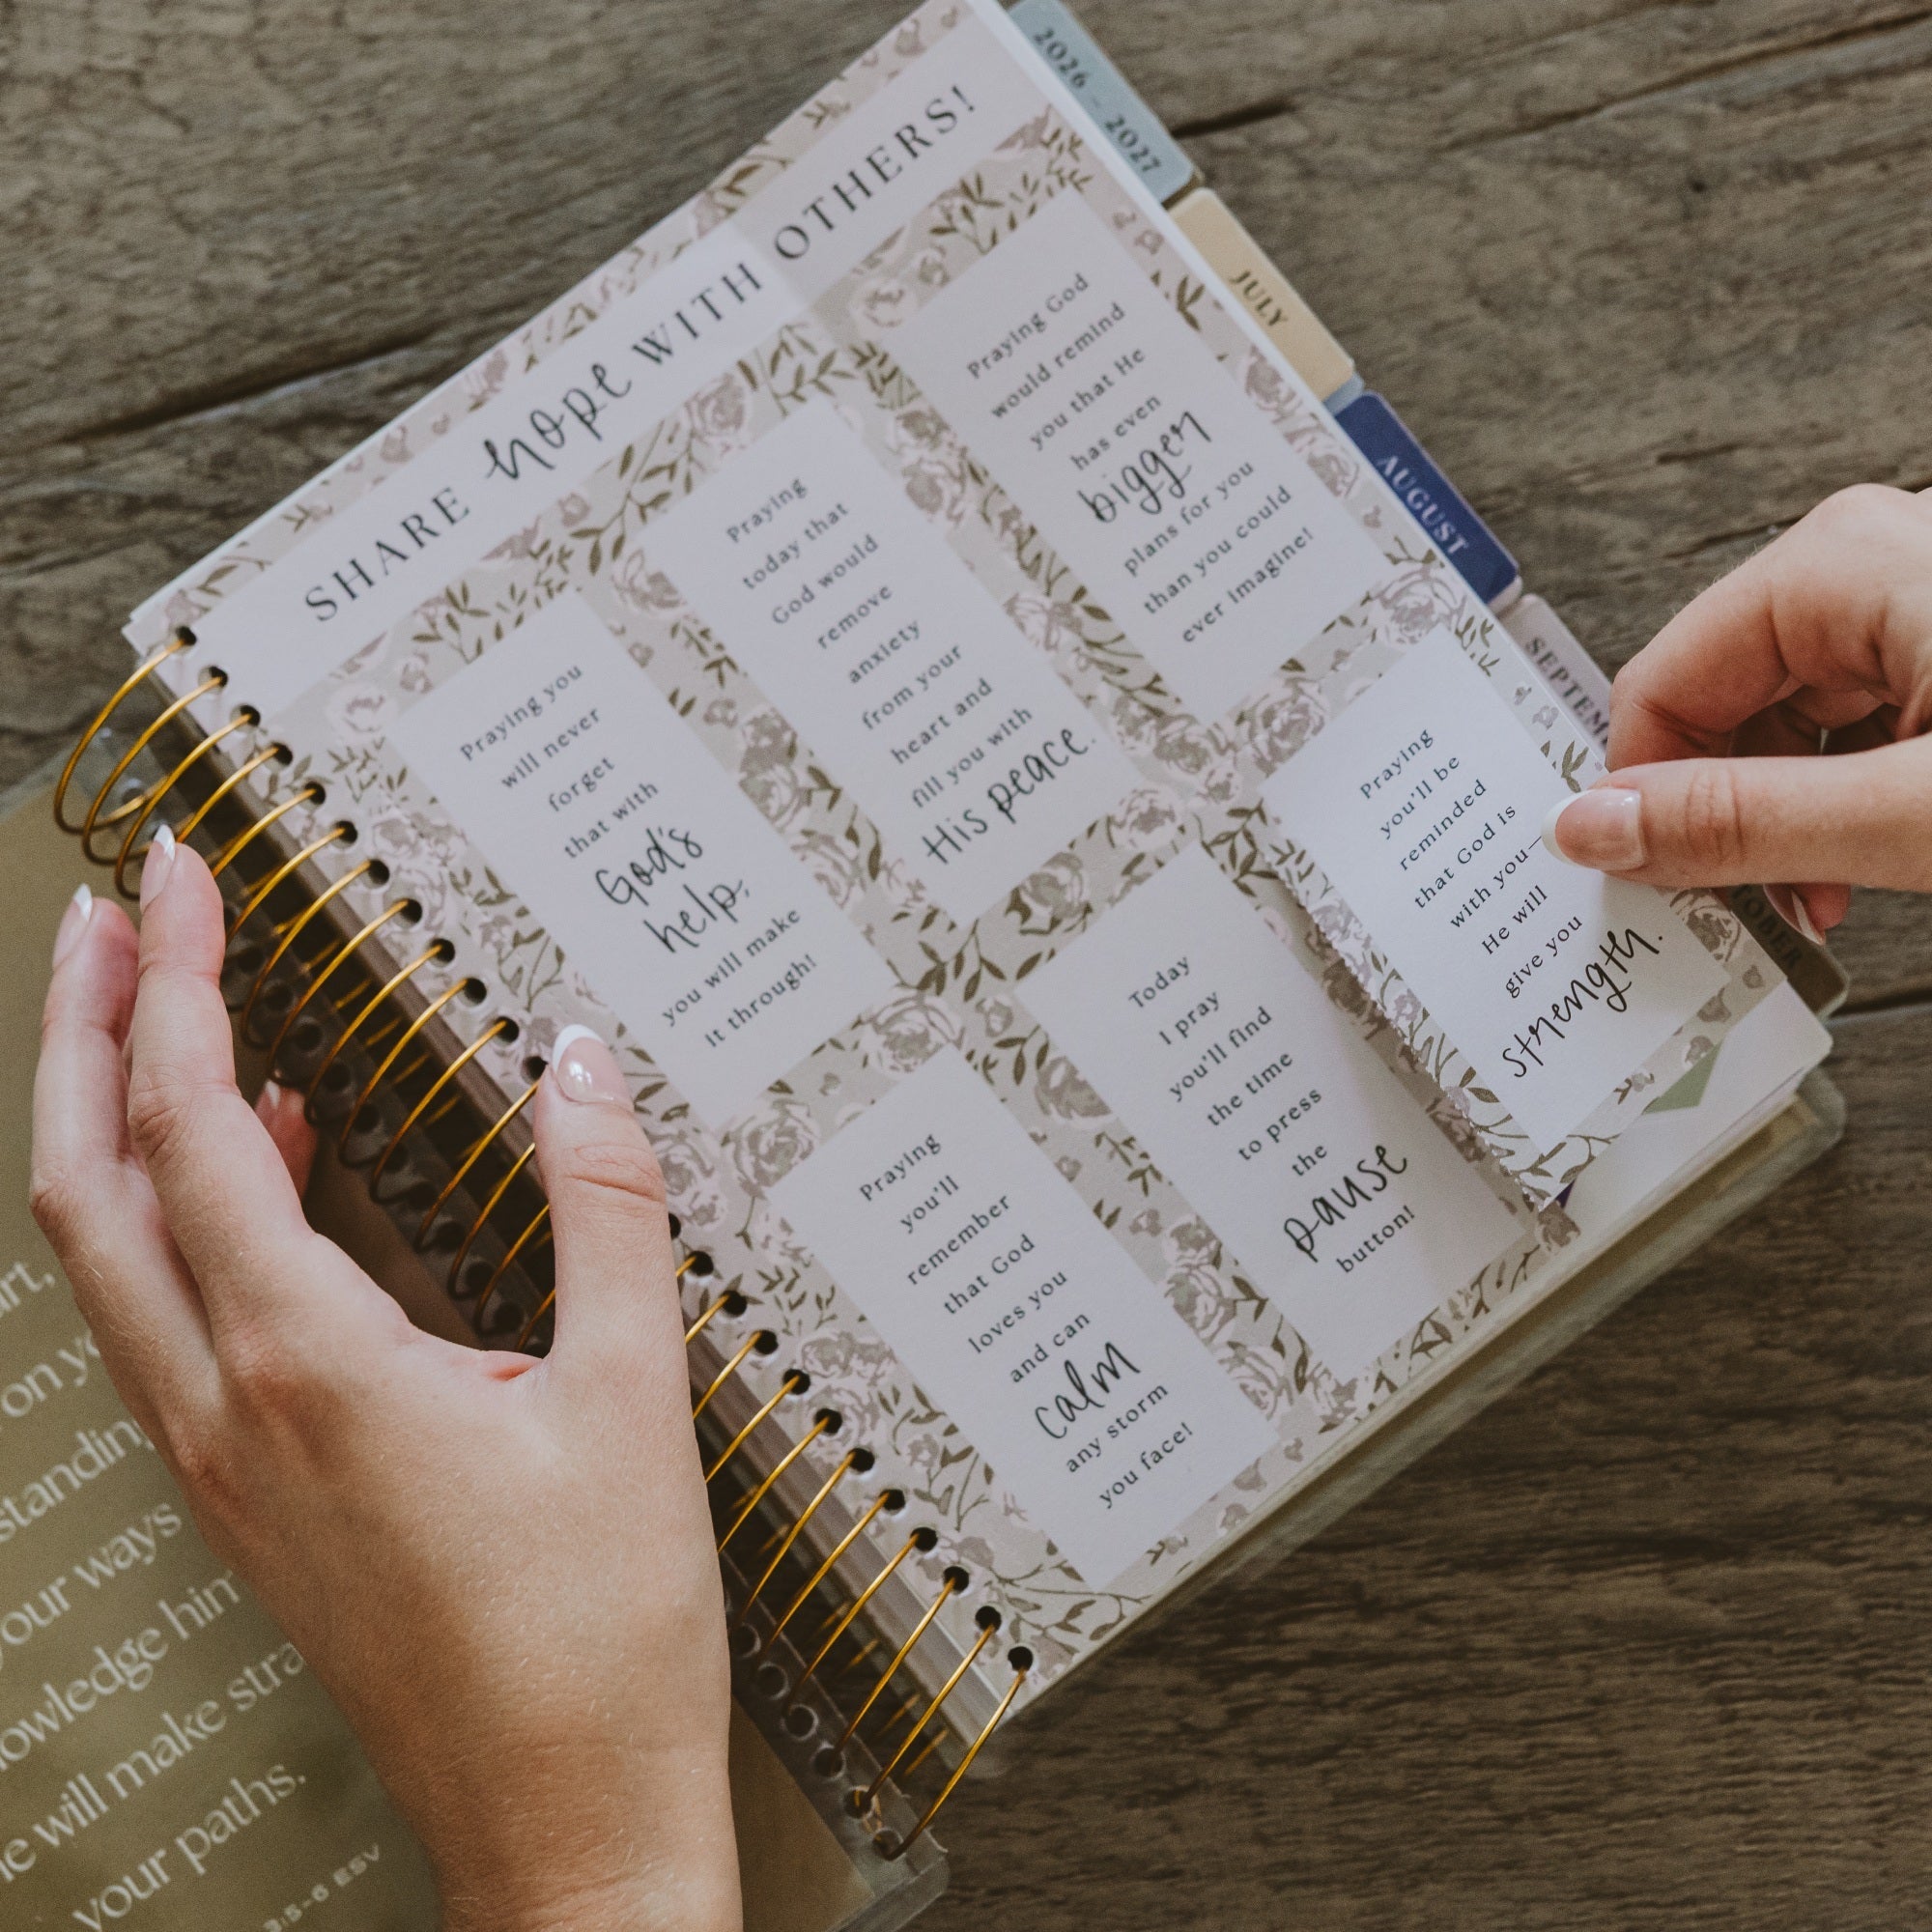 SHARE hope WITH OTHERS!
Praying you
will never
forget
that with
God's
help,
you will make
it through!
Praying
today that
God would
remove
anxiety
from your
heart and
fill you with
His peace.
Praying God
would remind
you that He
has even
bigger
plans for you
than you could
ever imagine!
Praying
you'll
remember
that God
loves you
and can
calm
any storm
you face!
Today
I pray
you'll find
the time
to press
the
pause
button!
Praying
you'll be
reminded
that God is
with you—
He will
give you
strength.
2026 - 2027
JULY
AUGUST
SEPTEM
TOBER
on
standing
your ways
knowledge him
he will make stra
your paths.
3:5-6 ESV